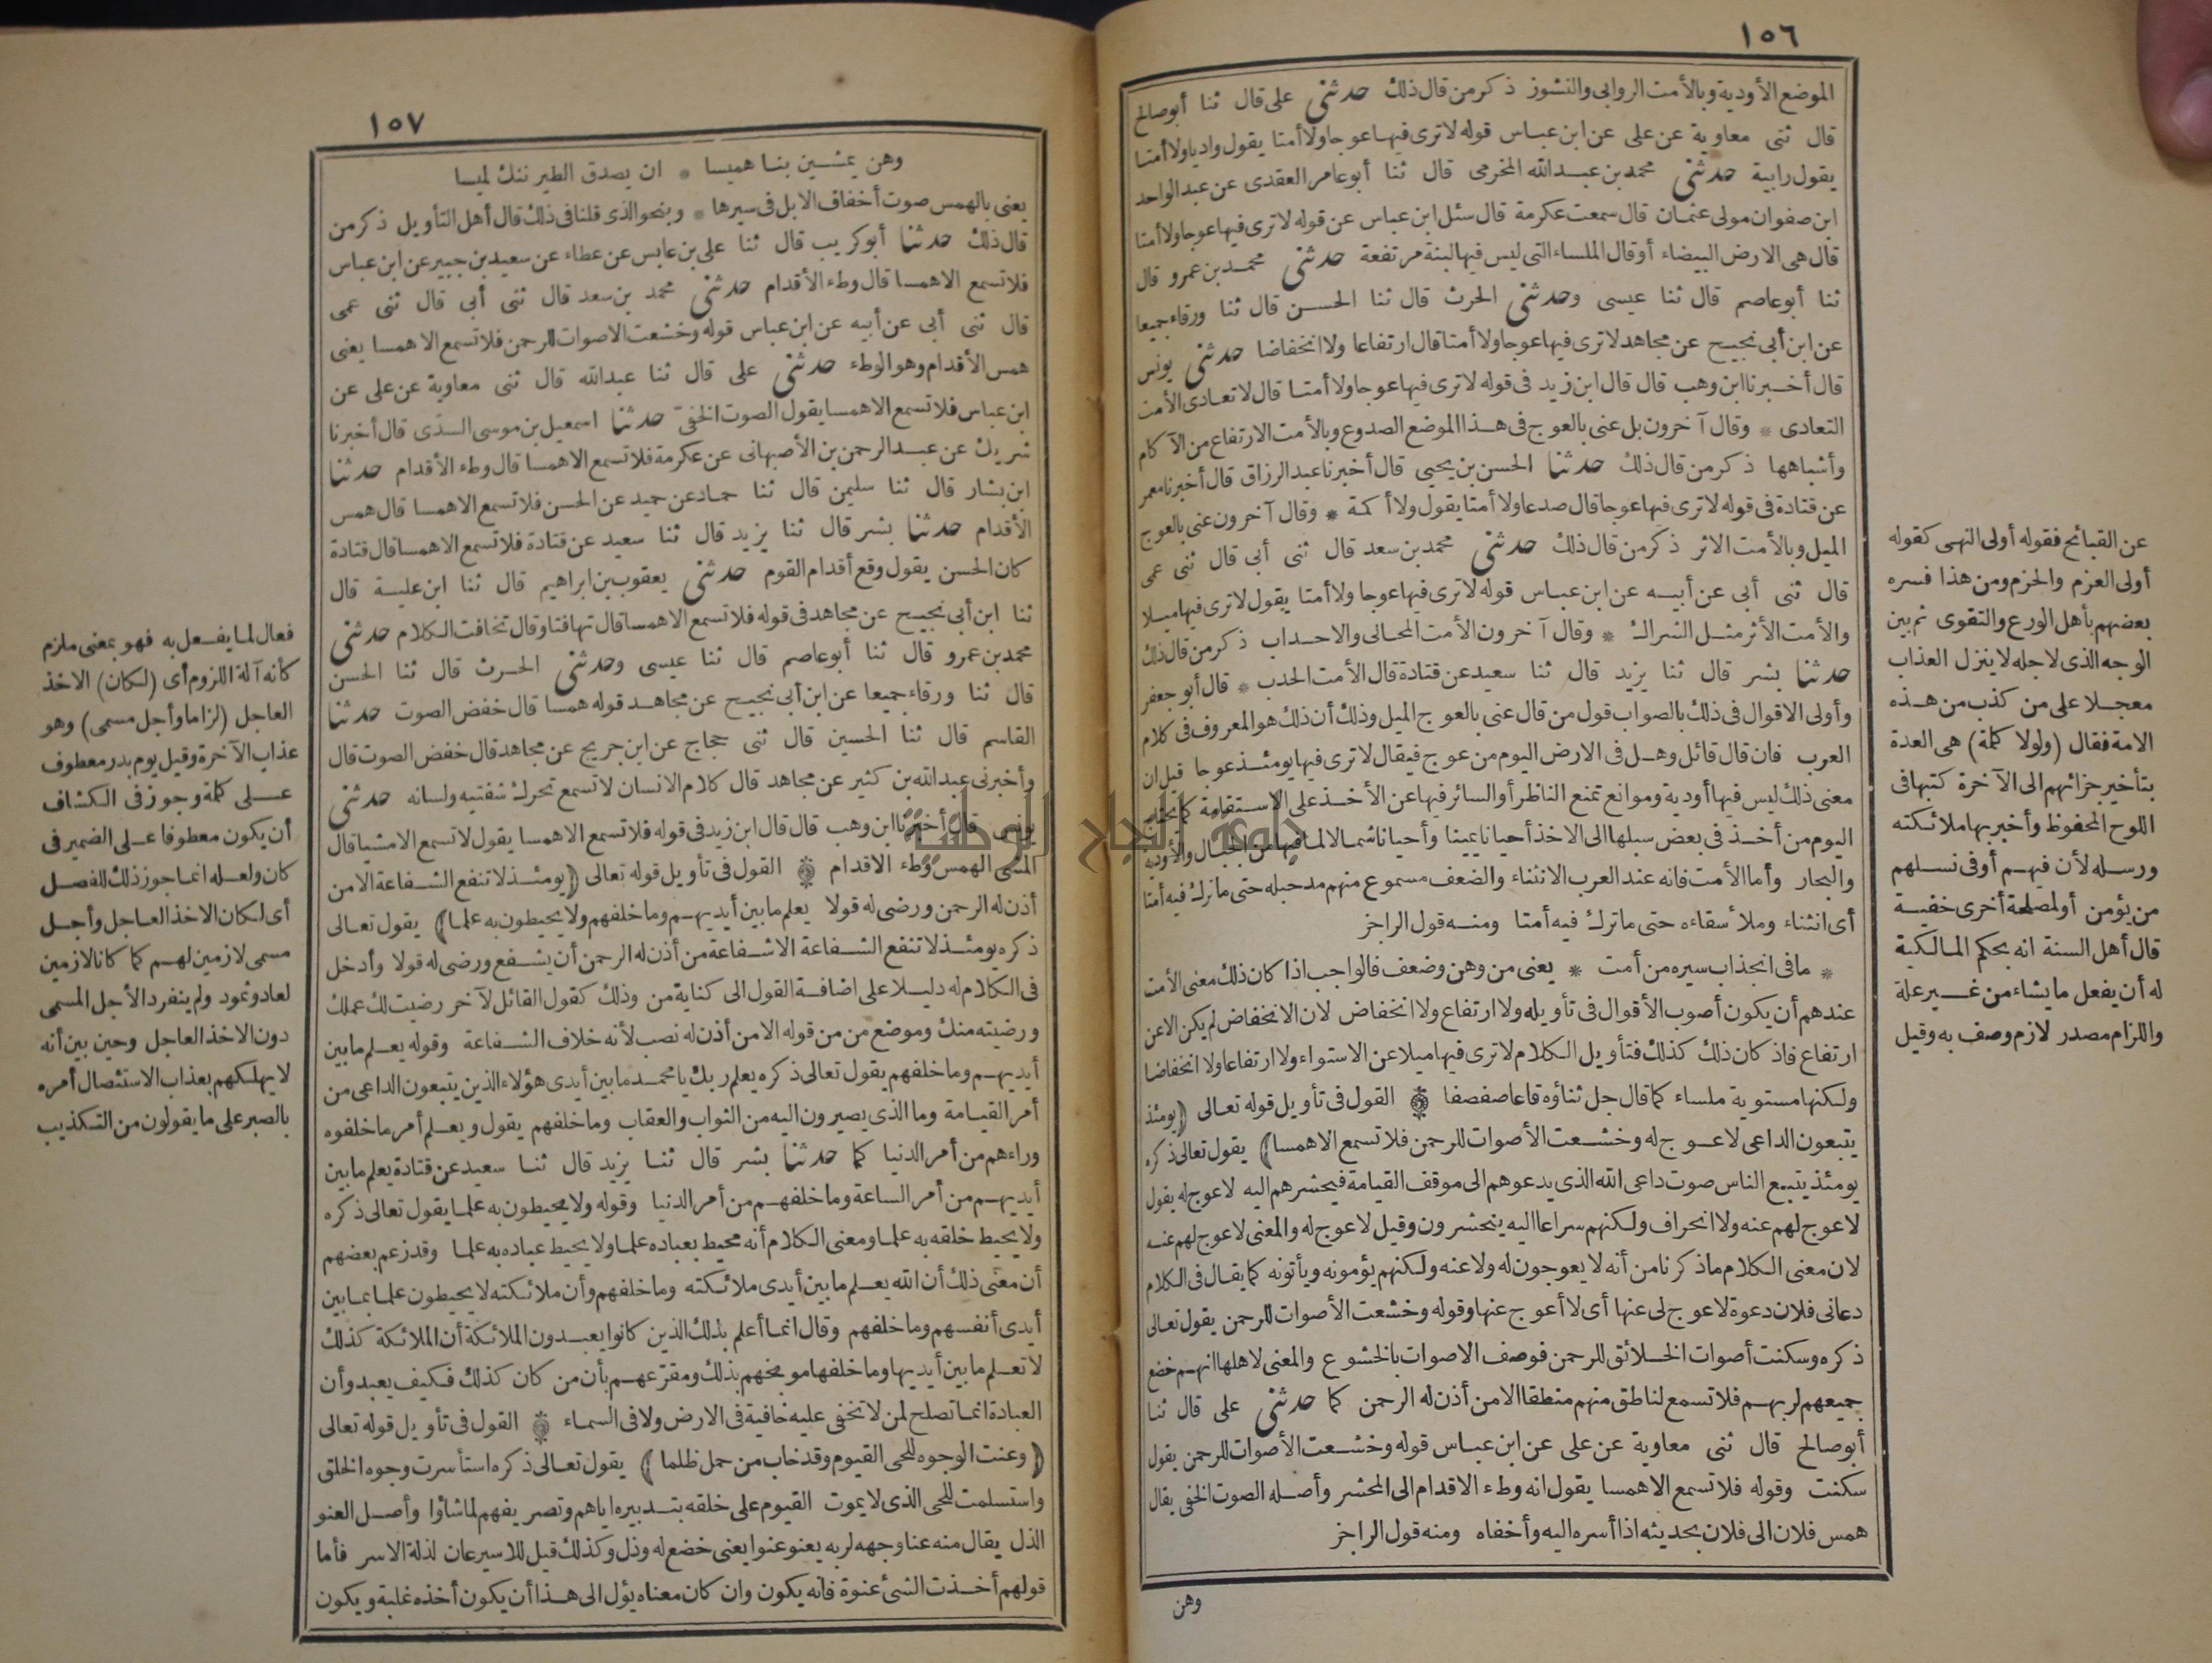 ١٥٦
الموضع الأودية وبالأمت الروابى والنشوز ذكر من قال ذلك حدثنى على قال ثنا أبو صالح
قال ثنى معاوية عن على عن ابن عباس قوله لا ترى فيها عوجا ولا أمتا يقول واديا ولا أمتا
يقول رابية حدثنى محمد بن عبد الله المخرمى قال ثنا أبو عامر العقدى عن عبد الواحد
ابن صفوان مولى عثمان قال سمعت عكرمة قال سئل ابن عباس عن قوله لا ترى فيها عوجا ولا أمتا
قال هى الارض البيضاء أو قال الملساء التى ليس فيها لبنة مرتفعة حدثنى محمد بن عمرو قال
ثنا أبو عاصم قال ثنا عيسى وحدثنى الحرث قال ثنا الحسن قال ثنا ورقاء جميعا
عن ابن أبى نجيح عن مجاهد لا ترى فيها عوجا ولا أمتا قال ارتفاعا ولا انخفاضا حدثنى يونس
قال أخبرنا ابن وهب قال قال ابن زيد فى قوله لا ترى فيها عوجا ولا أمتا قال لا تعادى الأمت
التعادى * وقال آخرون بل عنى بالعوج فى هذا الموضع الصدوع وبالأمت الارتفاع من الآكام
وأشباهها ذكر من قال ذلك حدثنا الحسن بن يحيى قال أخبرنا عبد الرزاق قال أخبرنا معمر
عن قتادة فى قوله لا ترى فيها عوجا قال صدعا ولا أمتا يقول ولا أكمة * وقال آخرون عنى بالعوج
الميل وبالأمت الاثر ذكر من قال ذلك حدثنى محمد بن سعد قال ثنى أبى قال ثنى عمى
قال ثنى أبى عن أبيه عن ابن عباس قوله لا ترى فيها عوجا ولا أمتا يقول لا ترى فيها ميلا
والأمت الأثر مثل الشراك * وقال آخرون الأمت المحانى والاحداب ذكر من قال ذلك
حدثنا بشر قال ثنا يزيد قال ثنا سعيد عن قتادة قال الأمت الحدب * قال أبو جعفر
وأولى الاقوال فى ذلك بالصواب قول من قال عنى بالعوج الميل وذلك أن ذلك هو المعروف فى كلام
العرب فان قال قائل وهل فى الارض اليوم من عوج فيقال لا ترى فيها يومئذ عوجا قيل ان
معنى ذلك ليس فيها أودية وموانع تمنع الناظر أو السائر فيها عن الأخذ على الاستقامة كما يحتاج
اليوم من أخذ فى بعض سبلها الى الاخذ أحيانا يمينا وأحيانا شمالا لما فيها من الجبال والأودية
والبحار وأما الأمت فانه عند العرب الانثناء والضعف مسموع منهم مد حبله حتى ما ترك فيه أمتا
أى انثناء وملأ سقاءه حتى ما ترك فيه أمتا ومنه قول الراجز
* ما فى انجذاب سيره من أمت * يعنى من وهن وضعف فالواجب اذا كان ذلك معنى الأمت
عندهم أن يكون أصوب الأقوال فى تأويله ولا ارتفاع ولا انخفاض لان الانخفاض لم يكن الا عن
ارتفاع فاذ كان ذلك كذلك فتأويل الكلام لا ترى فيها ميلا عن الاستواء ولا ارتفاعا ولا انخفاضا
ولكنها مستوية ملساء كما قال جل ثناؤه قاعا صفصفا ۞ القول فى تأويل قوله تعالى (يومئذ
يتبعون الداعى لا عوج له وخشعت الأصوات للرحمن فلا تسمع الا همسا) يقول تعالى ذكره
يومئذ يتبع الناس صوت داعى الله الذى يدعوهم الى موقف القيامة فيحشرهم اليه لا عوج له يقول
لا عوج لهم عنه ولا انحراف ولكنهم سراعا اليه ينحشرون وقيل لا عوج له والمعنى لا عوج لهم عنه
لان معنى الكلام ما ذكرنا من أنه لا يعوجون له ولا عنه ولكنهم يؤمونه ويأتونه كما يقال فى الكلام
دعانى فلان دعوة لا عوج لى عنها أى لا أعوج عنها وقوله وخشعت الأصوات للرحمن يقول تعالى
ذكره وسكنت أصوات الخلائق للرحمن فوصف الاصوات بالخشوع والمعنى لاهلها انهم خضع
جميعهم لربهم فلا تسمع لناطق منهم منطقا الا من أذن له الرحمن كما حدثنى على قال ثنا
أبو صالح قال ثنى معاوية عن على عن ابن عباس قوله وخشعت الأصوات للرحمن يقول
سكنت وقوله فلا تسمع الا همسا يقول انه وطء الاقدام الى المحشر وأصله الصوت الخفى يقال
همس فلان الى فلان بحديثه اذا أسره اليه وأخفاه ومنه قول الراجز
وهن
عن القبائح فقوله أولى النهى كقوله
أولى العزم والحزم ومن هذا فسره
بعضهم بأهل الورع والتقوى ثم بين
الوجه الذى لاجله لا ينزل العذاب
معجلا على من كذب من هذه
الامة فقال (ولولا كلمة) هى العدة
بتأخير جزائهم الى الآخرة كتبها فى
اللوح المحفوظ وأخبر بها ملائكته
ورسله لأن فيهم أو فى نسلهم
من يؤمن أو لمصلحة أخرى خفية
قال أهل السنة انه بحكم المالكية
له أن يفعل ما يشاء من غير علة
واللزام مصدر لازم وصف به وقيل
١٥٧
وهن يمشين بنا هميسا * ان يصدق الطير ننك لميسا
يعنى بالهمس صوت أخفاف الابل فى سيرها * وبنحو الذى قلنا فى ذلك قال أهل التأويل ذكر من
قال ذلك حدثنا أبو كريب قال ثنا على بن عابس عن عطاء عن سعيد بن جبير عن ابن عباس
فلا تسمع الا همسا قال وطء الأقدام حدثنى محمد بن سعد قال ثنى أبى قال ثنى عمى
قال ثنى أبى عن أبيه عن ابن عباس قوله وخشعت الاصوات للرحمن فلا تسمع الا همسا يعنى
همس الأقدام وهو الوطء حدثنى على قال ثنا عبد الله قال ثنى معاوية عن على عن
ابن عباس فلا تسمع الا همسا يقول الصوت الخفىّ حدثنا اسمعيل بن موسى السدّى قال أخبرنا
شريك عن عبد الرحمن بن الأصبهانى عن عكرمة فلا تسمع الا همسا قال وطء الأقدام حدثنا
ابن بشار قال ثنا سليمن قال ثنا حماد عن حميد عن الحسن فلا تسمع الا همسا قال همس
الأقدام حدثنا بشر قال ثنا يزيد قال ثنا سعيد عن قتادة فلا تسمع الا همسا قال قتادة
كان الحسن يقول وقع أقدام القوم حدثنى يعقوب بن ابراهيم قال ثنا ابن علية قال
ثنا ابن أبى نجيح عن مجاهد فى قوله فلا تسمع الا همسا قال تهافتا وقال تخافت الكلام حدثنى
محمد بن عمرو قال ثنا أبو عاصم قال ثنا عيسى وحدثنى الحرث قال ثنا الحسن
قال ثنا ورقاء جميعا عن ابن أبى نجيح عن مجاهد قوله همسا قال خفض الصوت حدثنا
القاسم قال ثنا الحسين قال ثنى حجاج عن ابن جريج عن مجاهد قال خفض الصوت قال
وأخبرنى عبد الله بن كثير عن مجاهد قال كلام الانسان لا تسمع تحرك شفتيه ولسانه حدثنى
يونس قال أخبرنا ابن وهب قال قال ابن زيد فى قوله فلا تسمع الا همسا يقول لا تسمع الا مشيا قال
المشى الهمس وطء الاقدام ۞ القول فى تأويل قوله تعالى (يومئذ لا تنفع الشفاعة الا من
أذن له الرحمن ورضى له قولا يعلم ما بين أيديهم وما خلفهم ولا يحيطون به علما) يقول تعالى
ذكره يومئذ لا تنفع الشفاعة الا شفاعة من أذن له الرحمن أن يشفع ورضى له قولا وأدخل
فى الكلام له دليلا على اضافة القول الى كناية من وذلك كقول القائل لآخر رضيت لك عملك
ورضيته منك وموضع من من قوله الا من أذن له نصب لأنه خلاف الشفاعة وقوله يعلم ما بين
أيديهم وما خلفهم يقول تعالى ذكره يعلم ربك يا محمد ما بين أيدى هؤلاء الذين يتبعون الداعى من
أمر القيامة وما الذى يصيرون اليه من الثواب والعقاب وما خلفهم يقول ويعلم أمر ما خلفوه
وراءهم من أمر الدنيا كما حدثنا بشر قال ثنا يزيد قال ثنا سعيد عن قتادة يعلم ما بين
أيديهم من أمر الساعة وما خلفهم من أمر الدنيا وقوله ولا يحيطون به علما يقول تعالى ذكره
ولا يحيط خلقه به علما ومعنى الكلام أنه محيط بعباده علما ولا يحيط عباده به علما وقد زعم بعضهم
أن معنى ذلك أن الله يعلم ما بين أيدى ملائكته وما خلفهم وأن ملائكته لا يحيطون علما بما بين
أيدى أنفسهم وما خلفهم وقال انما أعلم بذلك الذين كانوا يعبدون الملائكة أن الملائكة كذلك
لا تعلم ما بين أيديها وما خلفها موبخهم بذلك ومقرّعهم بأن من كان كذلك فكيف يعبد وأن
العبادة انما تصلح لمن لا تخفى عليه خافية فى الارض ولا فى السماء ۞ القول فى تأويل قوله تعالى
(وعنت الوجوه للحى القيوم وقد خاب من حمل ظلما) يقول تعالى ذكره استأسرت وجوه الخلق
واستسلمت للحى الذى لا يموت القيوم على خلقه بتدبيره اياهم وتصريفهم لما شاؤا وأصل العنو
الذل يقال منه عنا وجهه لربه يعنو عنوا يعنى خضع له وذل وكذلك قيل للاسير عان لذلة الاسر فأما
قولهم أخذت الشئ عنوة فانه يكون وان كان معناه يؤل الى هذا أن يكون أخذه غلبة ويكون
فعال لما يفعل به فهو بمعنى ملزم
كأنه آلة اللزوم أى (لكان) الاخذ
العاجل (لزاما وأجل مسمى) وهو
عذاب الآخرة وقيل يوم بدر معطوف
على كلمة وجوز فى الكشاف
أن يكون معطوفا على الضمير فى
كان ولعله انما جوز ذلك للفصل
أى لكان الاخذ العاجل وأجل
مسمى لازمين لهم كما كانا لازمين
لعاد وثمود ولم ينفرد الأجل المسمى
دون الاخذ العاجل وحين بين أنه
لا يهلكهم بعذاب الاستئصال أمره
بالصبر على ما يقولون من التكذيب
جامعة النجاح الوطنية